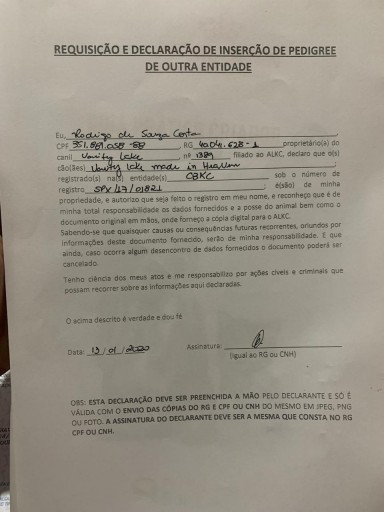 REQUISIÇÃO E DECLARAÇÃO DE INSERÇÃO DE PEDIGREE
DE OUTRA ENTIDADE
Eu, Rodrigo de Souza Costa
CPF 351.869.058-88 RG 40.041.628-1 proprietário(a) do
canil Vanity Lake nº 1389 filiado ao ALKC, declaro que o(s)
cão(ães) Vanity lake made in Heaven
registrado(s) na(s) entidade(s) CBKC sob o número de
registro SPX/17/01821 é(são) de minha
propriedade, e autorizo que seja feito o registro em meu nome, e reconheço que é de
minha total responsabilidade os dados fornecidos e a posse do animal bem como o
documento original em mãos, onde forneço a cópia digital para o ALKC.
Sabendo-se que quaisquer causas ou consequências futuras recorrentes, oriundos por
informações deste documento fornecido, serão de minha responsabilidade. E que
ainda, caso ocorra algum desencontro de dados fornecidos o documento poderá ser
cancelado.
Tenho ciência dos meus atos e me responsabilizo por ações cíveis e criminais que
possam recorrer sobre as informações aqui declaradas.
O acima descrito é verdade e dou fé
Data: 13/01/2020 Assinatura:
(Igual ao RG ou CNH)
OBS: ESTA DECLARAÇÃO DEVE SER PREENCHIDA A MÃO PELO DECLARANTE E SÓ É
VÁLIDA COM O ENVIO DAS CÓPIAS DO RG E CPF OU CNH DO MESMO EM JPEG, PNG
OU FOTO. A ASSINATURA DO DECLARANTE DEVE SER A MESMA QUE CONSTA NO RG
CPF OU CNH.